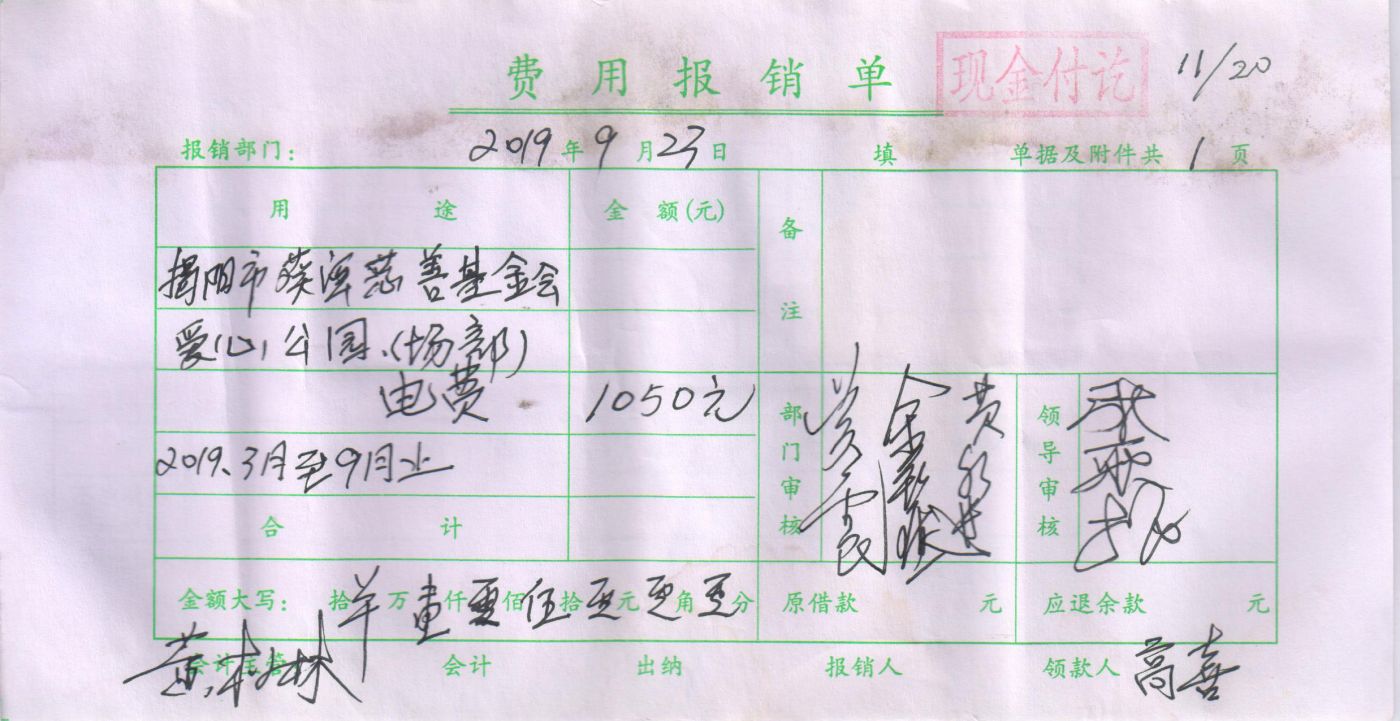 费用报销单 现金付讫 11/20
报销部门: 2019年9月23日 填 单据及附件共1页
用途 金额(元) 备注
揭阳市葵潭慈善基金会
爱心公园、(场部)
电费 1050元 部门审核 领导审核
2019、3月至9月止
合计
金额大写: 拾 万壹仟零佰伍拾零元零角零分 原借款 元 应退余款 元
会计主管 黄林 会计 出纳 报销人 领款人 高喜